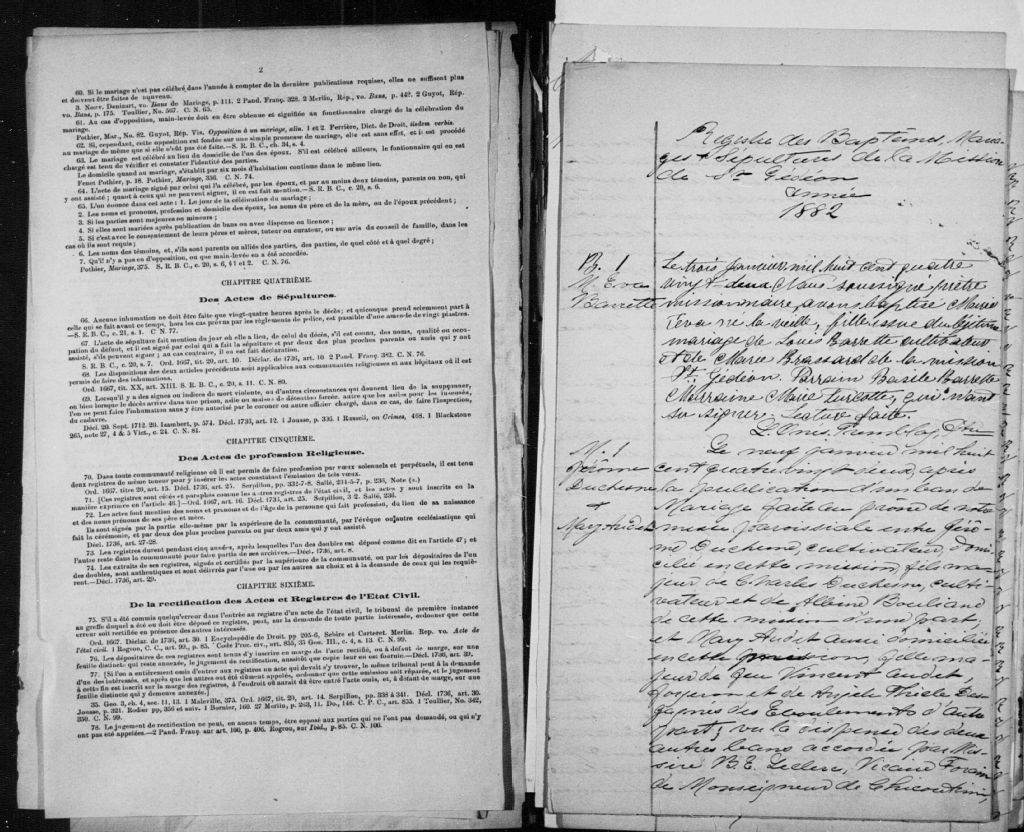 2
60. Si le mariage n'est pas célébré dans l'année à compter de la dernière publications requises, elles ne suffisent plus
et doivent être faites de nouveau.
3. Nouv. Denizart, vo. Bans de Mariage, p. 111. 2 Pand. Franç. 328. 2 Merlin, Rép., vo. Bans, p. 442. 2 Guyot, Rép.
vo. Bans, p. 175. Toullier, No. 567. C. N. 65.
61. Au cas d'opposition, main-levée doit en être obtenue et signifiée au fonctionnaire chargé de la célébration du
mariage.
Pothier, Mar., No. 82. Guyot, Rép. Vis. Opposition à un mariage, alin. 1 et 2. Ferrière, Dict. de Droit, iisdem verbis.
62. Si, cependant, cette opposition est fondée sur une simple promesse de mariage, elle est sans effet, et il est procédé
au mariage de même que si elle n'eût pas été faite.—S. R. B. C., ch. 34, s. 4.
63. Le mariage est célébré au lieu du domicile de l'un des époux. S'il est célébré ailleurs, le fonctionnaire qui en est
chargé est tenu de vérifier et constater l'identité des parties.
Le domicile quand au mariage, s'établit par six mois d'habitation continue dans le même lieu.
Fenet Pothier, p. 18. Pothier, Mariage, 356. C. N. 74.
64. L'acte de mariage signé par celui qui l'a célébré, par les époux, et par au moins deux témoins, parents ou non, qui
y ont assisté; quant à ceux qui ne peuvent signer, il en est fait mention.—S. R. B. C., c. 20, s. 6.
65. L'on énonce dans cet acte: 1. Le jour de la célébration du mariage;
2. Les noms et prénoms, profession et domicile des époux, les noms du père et de la mère, ou de l'époux précédent;
3. Si les parties sont majeures ou mineures;
4. Si elles sont mariées après publication de bans ou avec dispense ou licence;
5. Si c'est avec le consentement de leurs pères et mères, tuteur ou curateur, ou sur avis du conseil de famille, dans les
cas où ils sont requis;
6. Les noms des témoins, et, s'ils sont parents ou alliés des parties, des parties, de quel côté et à quel degré;
7. Qu'il n'y a pas eu d'opposition, ou que main-levée en a été accordée.
Pothier, Mariage, 375. S. R. B. C., c. 20, s. 6, § 1 et 2. C. N. 76.
CHAPITRE QUATRIÈME.
Des Actes de Sépultures.
66. Aucune inhumation ne doit être faite que vingt-quatre heures après le décès; et quiconque prend sciemment part à
celle qui se fait avant ce temps, hors les cas prévus par les règlements de police, est passible d'une amende de vingt piastres.
—S. R. B. C., c. 21, s. 1. C. N. 77.
67. L'acte de sépulture fait mention du jour où elle a lieu, de celui du décès, s'il est connu, des noms, qualité ou occu-
pation du défunt, et il est signé par celui qui a fait la sépulture et par deux des plus proches parents ou amis qui y ont
assisté, s'ils peuvent signer; au cas contraire, il en est fait déclaration.
S. R. B. C., c. 20, s. 7. Ord. 1667, tit. 20, art. 10. Déclar. de 1736, art. 10. 2 Pand. Franç. 382. C. N. 76.
68. Les dispositions des deux articles précédents sont applicables aux communautés religieuses et aux hôpitaux où il est
permis de faire des inhumations.
Ord. 1667, tit. XX, art. XIII. S. R. B. C., c. 20, s. 11. C. N. 80.
69. Lorsqu'il y a des signes ou indices de mort violente, ou d'autres circonstances qui donnent lieu de la soupçonner,
ou bien lorsque le décès arrive dans une prison, asile ou maison de détention forcée, autre que les asiles pour les insensés,
l'on ne peut faire l'inhumation sans y être autorisé par le coroner ou autre officier chargé, dans ce cas, de faire l'inspection,
du cadavre.
Décl. 20. Sept. 1712. 20. Isambert, p. 574. Décl. 1736, art. 12. 1 Jousse, p. 336. 1 Russell, on Crimes, 468. 1 Blackstone
265, note 27, 4 & 5 Vict., c. 24. C. N. 81.
CHAPITRE CINQUIÈME.
Des Actes de profession Religieuse.
70. Dans toute communauté religieuse où il est permis de faire profession par vœux solennels et perpétuels, il est tenu
deux registres de même teneur pour y insérer les actes constatant l'émission de tels vœux.
Ord. 1667, titre 20, art. 15. Décl. 1736, art. 25. Serpillon, pp. 337-7-8. Sallé, 234-5-7, p. 236, Note (a.)
71. [Ces registres sont cotés et paraphés comme les autres registres de l'état civil, et les actes y sont inscrits en la
manière exprimée en l'article 46.]—Ord. 1667, art. 16. Décl. 1736, art. 25. Serpillon, 3 2. Sallé, 236.
72. Les actes font mention des noms et prénoms et de l'âge de la personne qui fait profession, du lieu de sa naissance
et des noms prénoms de ses père et mère.
Ils sont signés par la partie elle-même par la supérieure de la communauté, par l'évêque ou autre ecclésiastique qui
fait la cérémonie, et par deux des plus proches parents ou par deux amis qui y ont assisté.
Décl. 1736, art. 27-28.
73. Les registres durent pendant cinq années, après lesquelles l'un des doubles est déposé comme dit en l'article 47; et
l'autre reste dans la communauté pour faire partie de ses archives.—Décl. 1736, art. 8.
74. Les extraits de ses registres, signés et certifiés par la supérieure de la communauté, ou par les dépositaires de l'un
des doubles, sont authentiques et sont délivrés par l'une ou par les autres au choix et à la demande de ceux qui les requiè-
rent.—Décl. 1736, art. 29.
CHAPITRE SIXIÈME.
De la rectification des Actes et Registres de l'Etat Civil.
75. S'il a été commis quelqu'erreur dans l'entrée au registre d'un acte de l'état civil, le tribunal de première instance
au greffe duquel a été ou doit être déposé ce registre, peut, sur la demande de toute partie intéressée, ordonner que cette
erreur soit rectifiée en présence des autres intéressés.
Ord. 1667. Déclar. de 1736, art. 30. 1 Encyclopédie de Droit. pp. 205-6, Sebire et Carteret. Merlin. Rep. vo. Acte de
l'état civil. 1 Rogron, C. C., art. 99, p. 85. Code Proc. civ., art. 855, 35 Geo. III., c. 4, s. 13. C. N. 99.
76. Les dépositaires de ces registres sont tenus d'y inscrire en marge de l'acte rectifié, ou à défaut de marge, sur une
feuille distincte qui reste annexée, le jugement de rectification, aussitôt que copie leur en est fournie.—Décl. 1736, art. 39.
77. [Si l'on a entièrement omis d'entrer aux registres un acte qui devait s'y trouver, le même tribunal peut à la demande
d'un des intéressés, et après que les autres ont été dûment appelés, ordonner que cette omission soit réparée, et le jugement
à cette fin est inscrit sur la marge des registres, à l'endroit où aurait dû être entré l'acte omis, et, à défaut de marge, sur une
feuille distincte qui y demeure annexée.]
35. Geo. 3, ch. 4, sec. 11, 13. 1 Maleville, 373. Ord. 1667, tit. 20, art. 14. Serpillon, pp. 338 à 341. Décl. 1736, art. 30.
Jousse, p. 321. Rodier pp. 356 et suiv. 1 Bornier, 160. 27 Merlin, p. 263, 11. Do., 146. C. P. C., art. 855. 1 Toullier, No. 342,
350. C. N. 99.
78. Le jugement de rectification ne peut, en aucun temps, être opposé aux parties qui ne l'ont pas demandé, ou qui n'y
ont pas été appelées.—2 Pand. Franç. sur art. 100, p. 406. Rogron, sur Ibid., p. 85. C. N. 100.
Registre des Baptêmes, Maria-
ges & Sépultures de la Mission
de St Gédéon
Année
1882
B. 1
M. Eva
Barrette
Le trois janvier mil huit cent quatre
vingt-deux Nous soussigné prêtre
missionnaire, avons baptisé Marie
Eva née la veille, fille issue du légitime
mariage de Louis Barrette cultivateur
et de Marie Brassard de la mission
St Gédéon. Parrain Basile Barrette
Marraine Marie Turcotte, qui n'ont
su signer. Lecture faite.
L. Ones. Tremblay, Ptre
M. 1
Jérôme
Duchesne
&
Mary Audet
Le neuf janvier mil huit
cent quatre vingt deux, après
la publication d'un ban de
Mariage faite au prône de notre
messe paroissiale entre Jérô-
me Duchesne, cultivateur, domi-
cilié en cette mission, fils ma-
jeur de Charles Duchesne, culti-
vateur et de Albine Bouliane
de cette mission d'une part,
et Mary Audet aussi domiciliée
en cette mission, fille ma-
jeure de feu Vincent Audet
et de Angèle Thisle
des Eboulements d'autre
part; vu la dispense des deux
autres bans accordée par Mes-
sire B. E. Leclerc, Vicaire Forain
de Monseigneur de Chicoutimi,